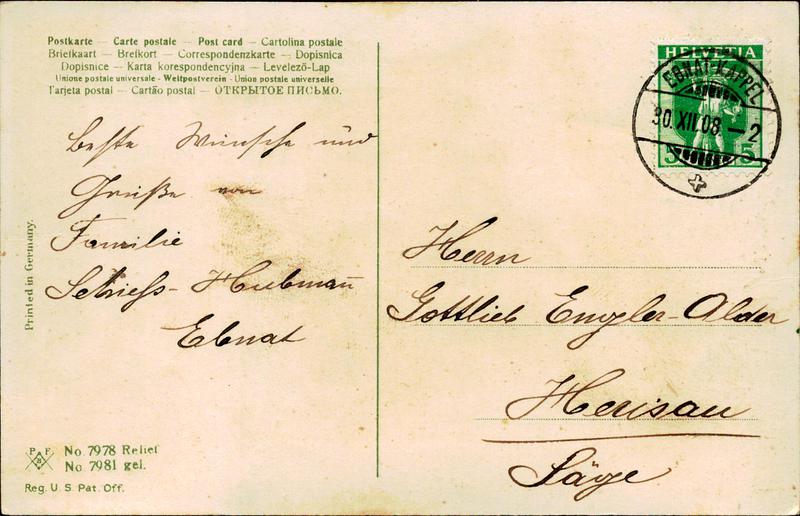 Postkarte – Carte postale – Post card – Cartolina postale
Briefkaart – Brefkort – Correspondenzkarte – Dopisnica
Dopisnice – Karta korespondencyjna – Levelező-Lap
Unione postale universale - Weltpostverein - Union postale universelle
Tarjeta postal – Cartão postal – ОТКРЫТОЕ ПИСЬМО.
Beste Wünsche und
Grüße von
Familie
Hubmann
Ebnat
Printed in Germany.
P F B
No. 7978 Relief
No. 7981 gel.
Reg. U. S. Pat. Off.
HELVETIA
5 5
EBNAT-KAPPEL
30. XII. 08. – 2
Herrn
Gottlieb Engler-Alder
Herisau
Säge